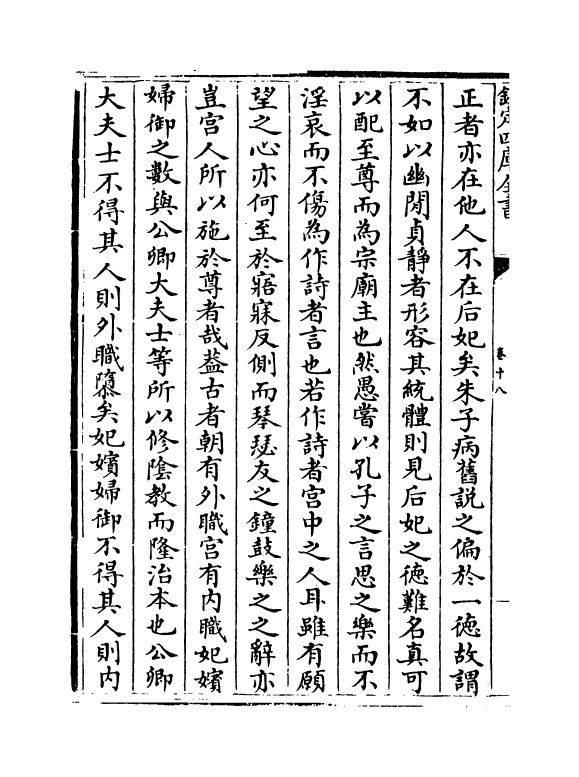 欽定四庫全書
卷十八
正者亦在他人不在后妃矣朱子病舊説之偏於一徳故謂
不如以幽閒貞靜者形容其統體則見后妃之徳難名真可
以配至尊而為宗廟主也然愚嘗以孔子之言思之樂而不
淫哀而不傷為作詩者言也若作詩者宫中之人耳雖有願
望之心亦何至於寤寐反側而琴瑟友之鐘鼓樂之之辭亦
豈宫人所以施於尊者哉葢古者朝有外職宫有内職妃嬪
婦御之數與公卿大夫士等所以修陰教而隆治本也公卿
大夫士不得其人則外職隳矣妃嬪婦御不得其人則内